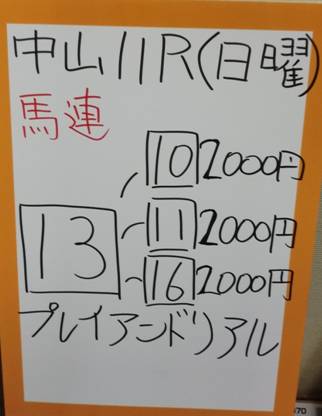 中山11R(日曜)
馬連
10 2000円
13 11 2000円
16 2000円
プレイアンドリアル